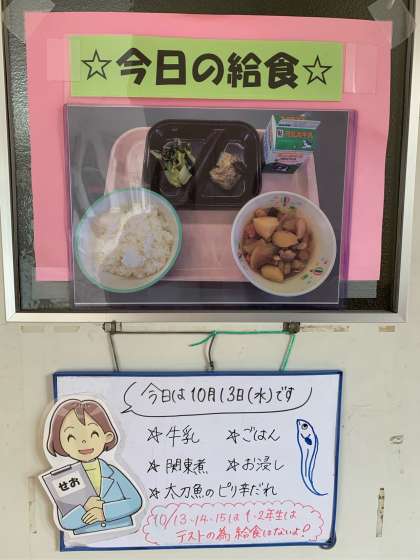 ☆今日の給食☆
今日は10月13日(水)です
☆牛乳 ☆ごはん
☆関東煮 ☆お浸し
☆太刀魚のピリ辛だれ
せお
10/13・14・15は1・2年生は
テストの為給食はないよ!